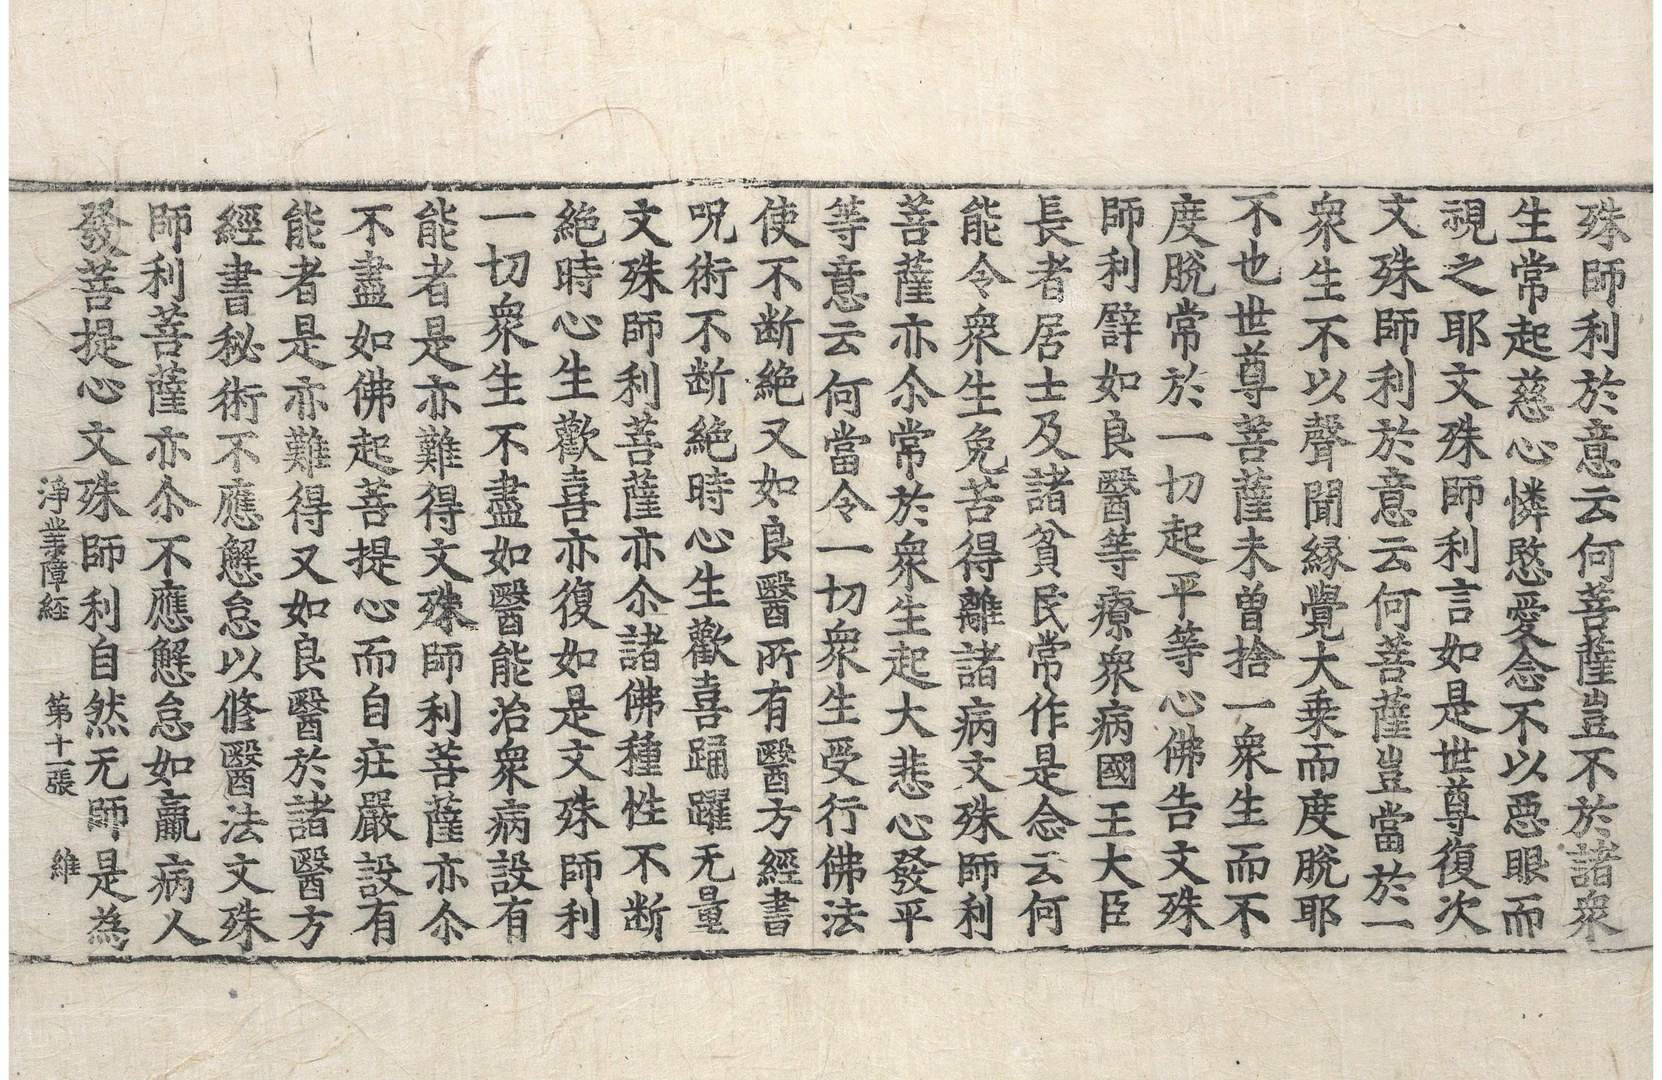 殊師利於意云何菩薩豈不於諸衆
生常起慈心憐愍愛念不以惡眼而
視之耶文殊師利言如是世尊復次
文殊師利於意云何菩薩豈當於一
衆生不以聲聞緣覺大乗而度脫耶
不也世尊菩薩未曽捨一衆生而不
度脫常於一切起平等心佛告文殊
師利譬如良醫等療衆病國王大臣
長者居士及諸貧民常作是念云何
能令衆生免苦得離諸病文殊師利
菩薩亦尒常於衆生起大悲心發平
等意云何當令一切衆生受行佛法
使不断絶又如良醫所有醫方經書
呪術不断絶時心生歡喜踊躍无量
文殊師利菩薩亦尒諸佛種性不断
絶時心生歡喜亦復如是文殊師利
一切衆生不盡如醫能治衆病設有
能者是亦難得文殊師利菩薩亦尒
不盡如佛起菩提心而自㽵嚴設有
能者是亦難得又如良醫於諸醫方
經書秘術不應懈怠以修醫法文殊
師利菩薩亦尒不應懈怠如羸病人
發菩提心文殊師利自然无師是為
淨業障経 第十一張 維